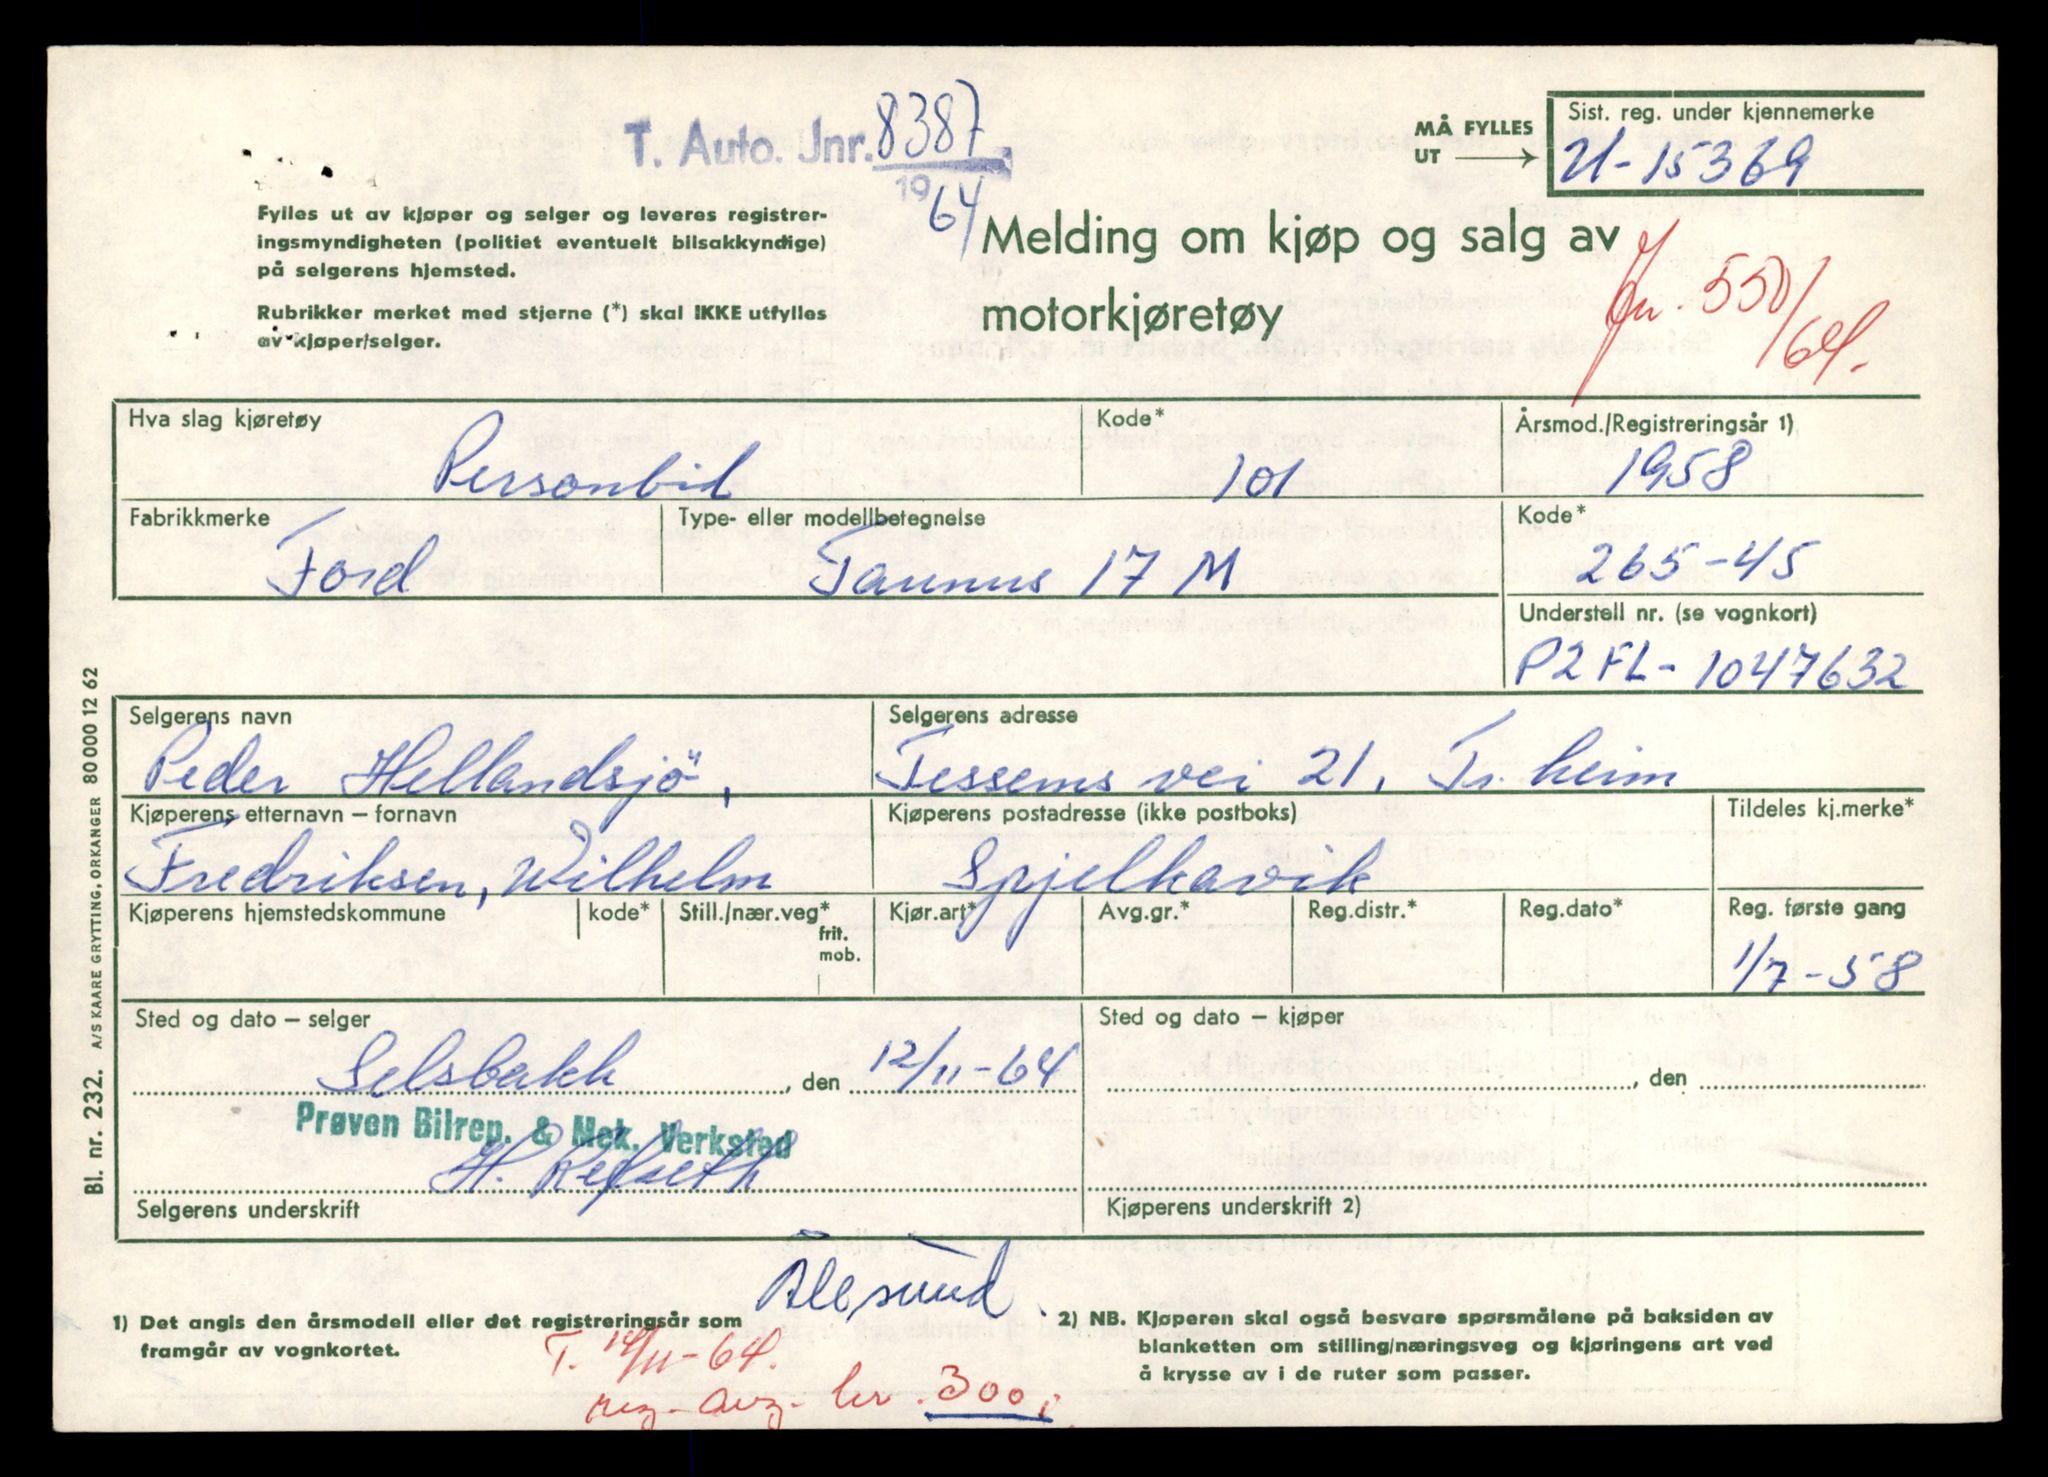 T. Auto. Jnr. 8387
1964
MÅ FYLLES UT
Sist. reg. under kjennemerke
U-15369
Fylles ut av kjøper og selger og leveres registrer-
ingsmyndigheten (politiet eventuelt bilsakkyndige)
på selgerens hjemsted.
Rubrikker merket med stjerne (*) skal IKKE utfylles
av kjøper/selger.
Melding om kjøp og salg av
motorkjøretøy
Jnr. 550/64.
Hva slag kjøretøy
Personbil
Kode*
101
Årsmod./Registreringsår 1)
1958
Fabrikkmerke
Ford
Type- eller modellbetegnelse
Taunus 17 M
Kode*
265-45
Understell nr. (se vognkort)
P2FL-1047632
Selgerens navn
Peder Hellandsjö,
Selgerens adresse
Tessems vei 21, Tr.heim
Kjøperens etternavn – fornavn
Fredriksen, Wilhelm
Kjøperens postadresse (ikke postboks)
Spjelkavik
Tildeles kj.merke*
Kjøperens hjemstedskommune
kode*
Still./nær.veg*
frit.
mob.
Kjør.art*
Avg.gr.*
Reg.distr.*
Reg.dato*
Reg. første gang
1/7-58
Sted og dato – selger
Selsbakk, den 12/11-64
Sted og dato – kjøper
, den
Prøven Bilrep. & Mek. Verksted
H. Refseth
Selgerens underskrift
Kjøperens underskrift 2)
Ålesund.
1) Det angis den årsmodell eller det registreringsår som
framgår av vognkortet.
T. 14/11-64.
reg. avg. kr. 300,
2) NB. Kjøperen skal også besvare spørsmålene på baksiden av
blanketten om stilling/næringsveg og kjøringens art ved
å krysse av i de ruter som passer.
Bl. nr. 232. A/S KAARE GRYTTING, ORKANGER 80 000 12 62